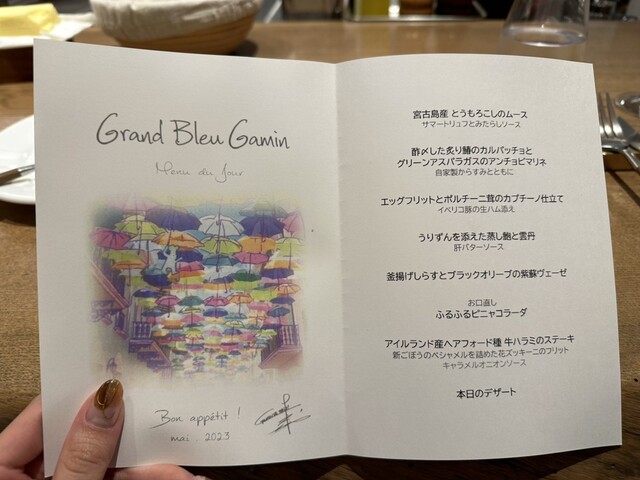 Grand Bleu Gamin
Menu du Jour
Bon appétit !
mai. 2023
宮古島産 とうもろこしのムース
サマートリュフとみたらしソース
酢〆した炙り鰆のカルパッチョと
グリーンアスパラガスのアンチョビマリネ
自家製からすみとともに
エッグフリットとポルチーニ茸のカプチーノ仕立て
イベリコ豚の生ハム添え
うりずんを添えた蒸し鮑と雲丹
肝バターソース
釜揚げしらすとブラックオリーブの紫蘇ヴェーゼ
お口直し
ふるふるピニャコラーダ
アイルランド産ヘアフォード種 牛ハラミのステーキ
新ごぼうのベシャメルを詰めた花ズッキーニのフリット
キャラメルオニオンソース
本日のデザート